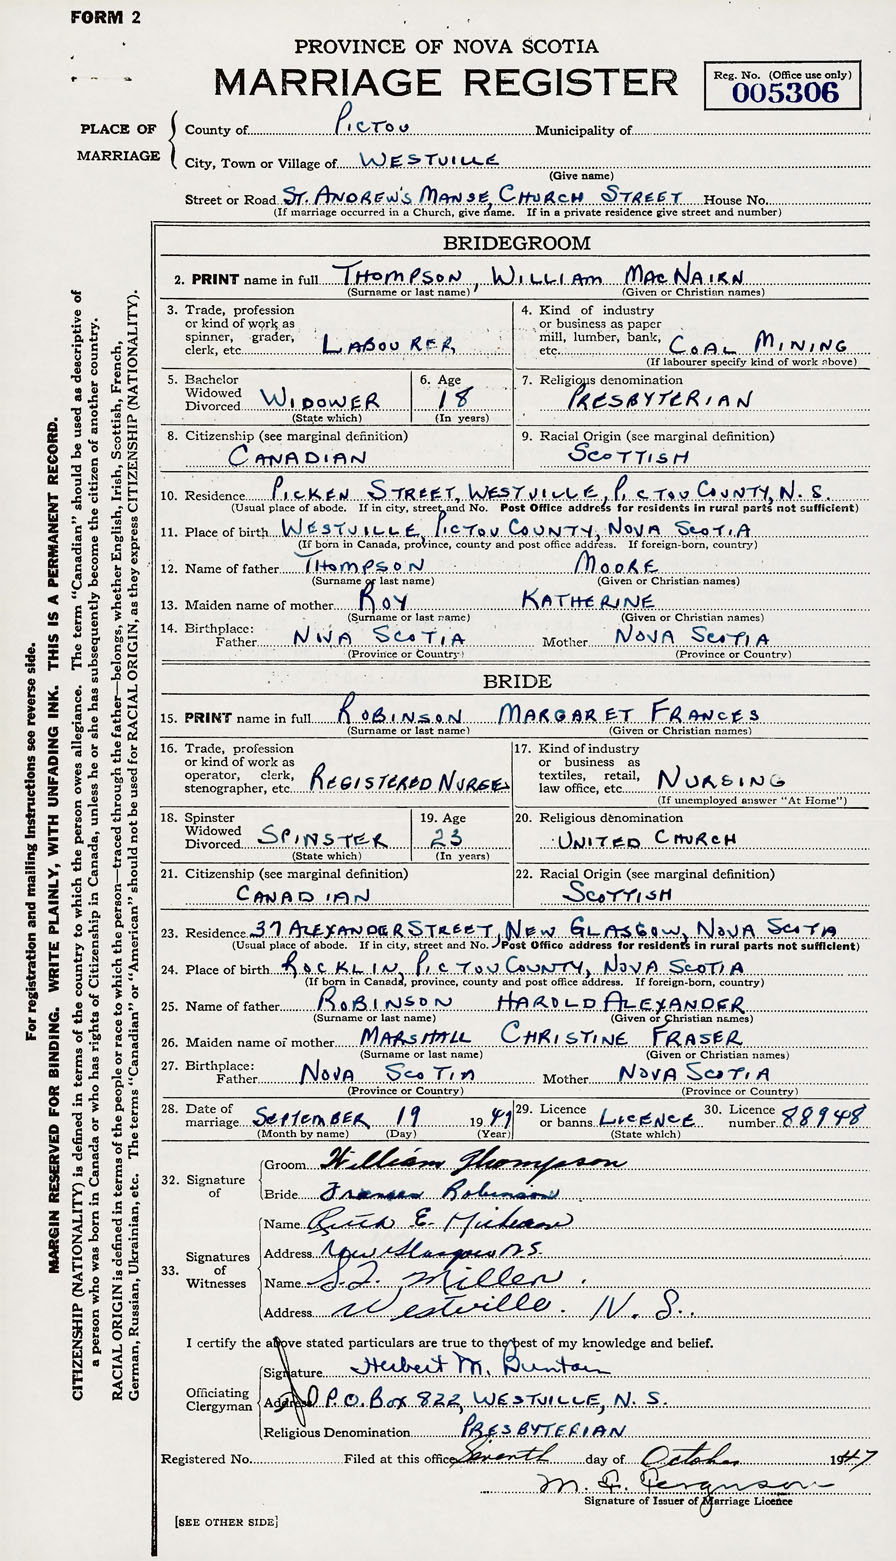 FORM 2
PROVINCE OF NOVA SCOTIA
MARRIAGE REGISTER
Reg. No. (Office use only)
005306
PLACE OF MARRIAGE
County of PICTOU Municipality of
City, Town or Village of WESTVILLE
(Give name)
Street or Road ST. ANDREW'S MANSE, CHURCH STREET House No.
(If marriage occurred in a Church, give name. If in a private residence give street and number)
BRIDEGROOM
2. PRINT name in full THOMPSON, WILLIAM MACNAIRN
(Surname or last name) (Given or Christian names)
3. Trade, profession or kind of work as spinner, grader, clerk, etc. LABOURER
4. Kind of industry or business as paper mill, lumber, bank, etc. COAL MINING
(If labourer specify kind of work above)
5. Bachelor Widowed Divorced WIDOWER
(State which)
6. Age 18
(In years)
7. Religious denomination
PRESBYTERIAN
8. Citizenship (see marginal definition)
CANADIAN
9. Racial Origin (see marginal definition)
SCOTTISH
10. Residence PICKEN STREET, WESTVILLE, PICTOU COUNTY, N. S.
(Usual place of abode. If in city, street and No. Post Office address for residents in rural parts not sufficient)
11. Place of birth WESTVILLE, PICTOU COUNTY, NOVA SCOTIA
(If born in Canada, province, county and post office address. If foreign-born, country)
12. Name of father THOMPSON MOORE
(Surname or last name) (Given or Christian names)
13. Maiden name of mother ROY KATHERINE
(Surname or last name) (Given or Christian names)
14. Birthplace: Father NOVA SCOTIA Mother NOVA SCOTIA
(Province or Country) (Province or Country)
BRIDE
15. PRINT name in full ROBINSON MARGARET FRANCES
(Surname or last name) (Given or Christian names)
16. Trade, profession or kind of work as operator, clerk, stenographer, etc. REGISTERED NURSE
17. Kind of industry or business as textiles, retail, law office, etc. NURSING
(If unemployed answer "At Home")
18. Spinster Widowed Divorced SPINSTER
(State which)
19. Age 23
(In years)
20. Religious denomination
UNITED CHURCH
21. Citizenship (see marginal definition)
CANADIAN
22. Racial Origin (see marginal definition)
SCOTTISH
23. Residence 37 ALEXANDER STREET, NEW GLASGOW, NOVA SCOTIA
(Usual place of abode. If in city, street and No. Post Office address for residents in rural parts not sufficient)
24. Place of birth ROCKLIN, PICTOU COUNTY, NOVA SCOTIA
(If born in Canada, province, county and post office address. If foreign-born, country)
25. Name of father ROBINSON HAROLD ALEXANDER
(Surname or last name) (Given or Christian names)
26. Maiden name of mother MARSHALL CHRISTINE FRASER
(Surname or last name) (Given or Christian names)
27. Birthplace: Father NOVA SCOTIA Mother NOVA SCOTIA
(Province or Country) (Province or Country)
28. Date of marriage SEPTEMBER 19 1947
(Month by name) (Day) (Year)
29. Licence or banns LICENCE
(State which)
30. Licence number 88948
32. Signature of
Groom William Thompson
Bride Frances Robinson
33. Signatures of Witnesses
Name Ruth E.
Address New Glasgow N.S.
Name S. F. Miller
Address Westville. N. S.
I certify the above stated particulars are true to the best of my knowledge and belief.
Officiating Clergyman
Signature Herbert M. Buntain
Address P.O. BOX 822, WESTVILLE, N. S.
Religious Denomination PRESBYTERIAN
Registered No. Filed at this office Seventh day of October 1947
M. Ferguson
Signature of Issuer of Marriage Licence
[SEE OTHER SIDE]
For registration and mailing instructions see reverse side.
MARGIN RESERVED FOR BINDING. WRITE PLAINLY, WITH UNFADING INK. THIS IS A PERMANENT RECORD.
CITIZENSHIP (NATIONALITY) is defined in terms of the country to which the person owes allegiance. The term "Canadian" should be used as descriptive of
a person who was born in Canada or who has rights of Citizenship in Canada, unless he or she has subsequently become the citizen of another country.
RACIAL ORIGIN is defined in terms of the people or race to which the person—traced through the father—belongs, whether English, Irish, Scottish, French,
German, Russian, Ukrainian, etc. The terms "Canadian" or "American" should not be used for RACIAL ORIGIN, as they express CITIZENSHIP (NATIONALITY).